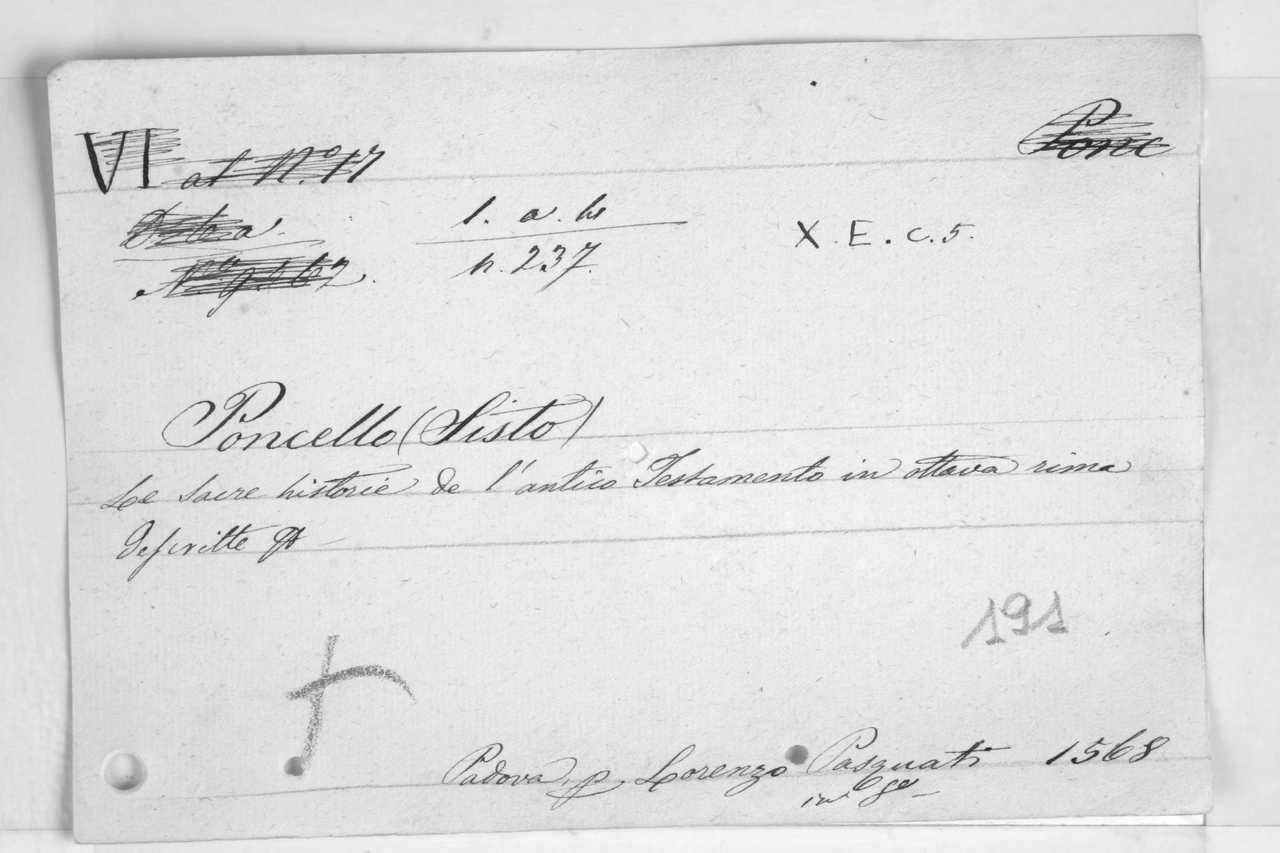 VI at N.º 17
Ponc
l. a. h
n. 237.
X. E. c. 5.
Poncello (Sisto)
Le sacre historie de l'antico Testamento in ottava rima
descritte
191
Padova, p. Lorenzo Pasquati 1568
in